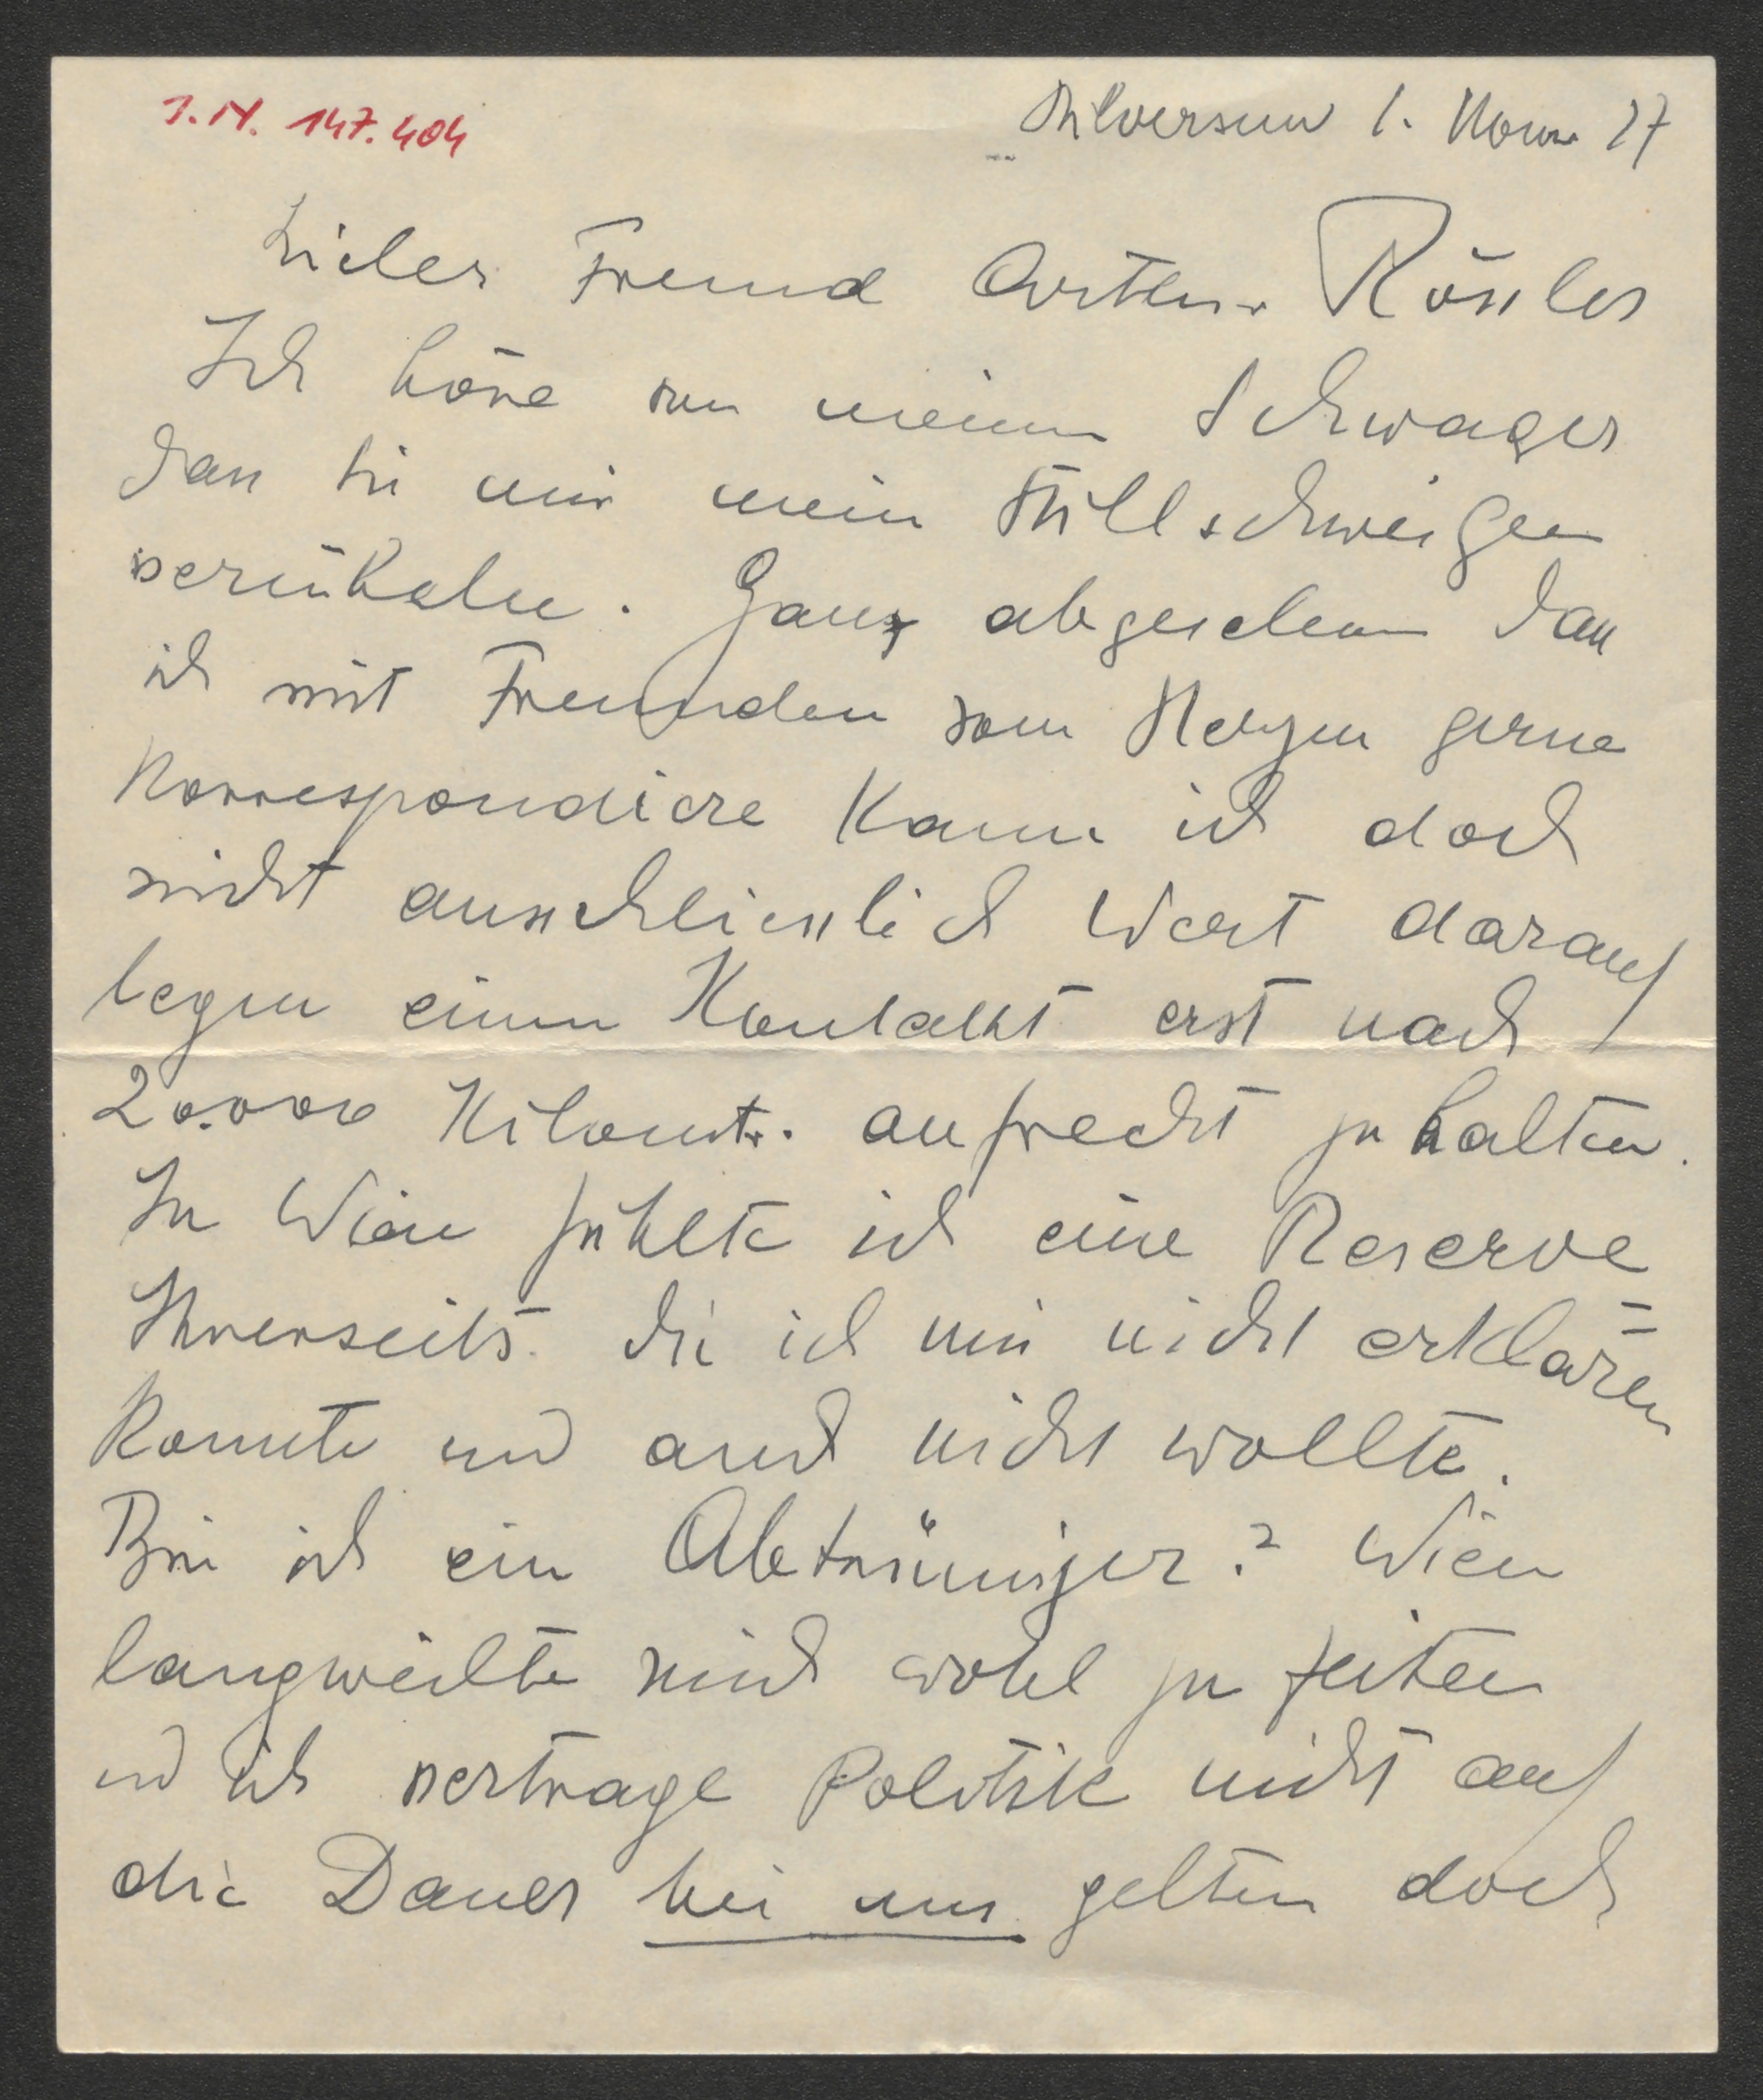 J.N. 147.404
Hilversum 1. Novem 27
Lieber Freund Arthur Rössler
Ich höre von meinem Schwager
dass Sie mir mein Stillschweigen
verübeln. Ganz abgesehen dass
ich mit Freunden vom Herzen gerne
Korrespondiere Kann ich doch
nicht ausschliesslich Wert darauf
legen einen Kontakt erst nach
20.000 Kilomtr. aufrecht zu halten.
In Wien fühlte ich eine Reserve
Ihrerseits die ich mir nicht erklären
konnte und auch nicht wollte.
Bin ich ein Abtrünniger? Wien
langweilte mich wohl zu zeiten
und ich vertrage Politik nicht auf
die Dauer bei uns gelten doch